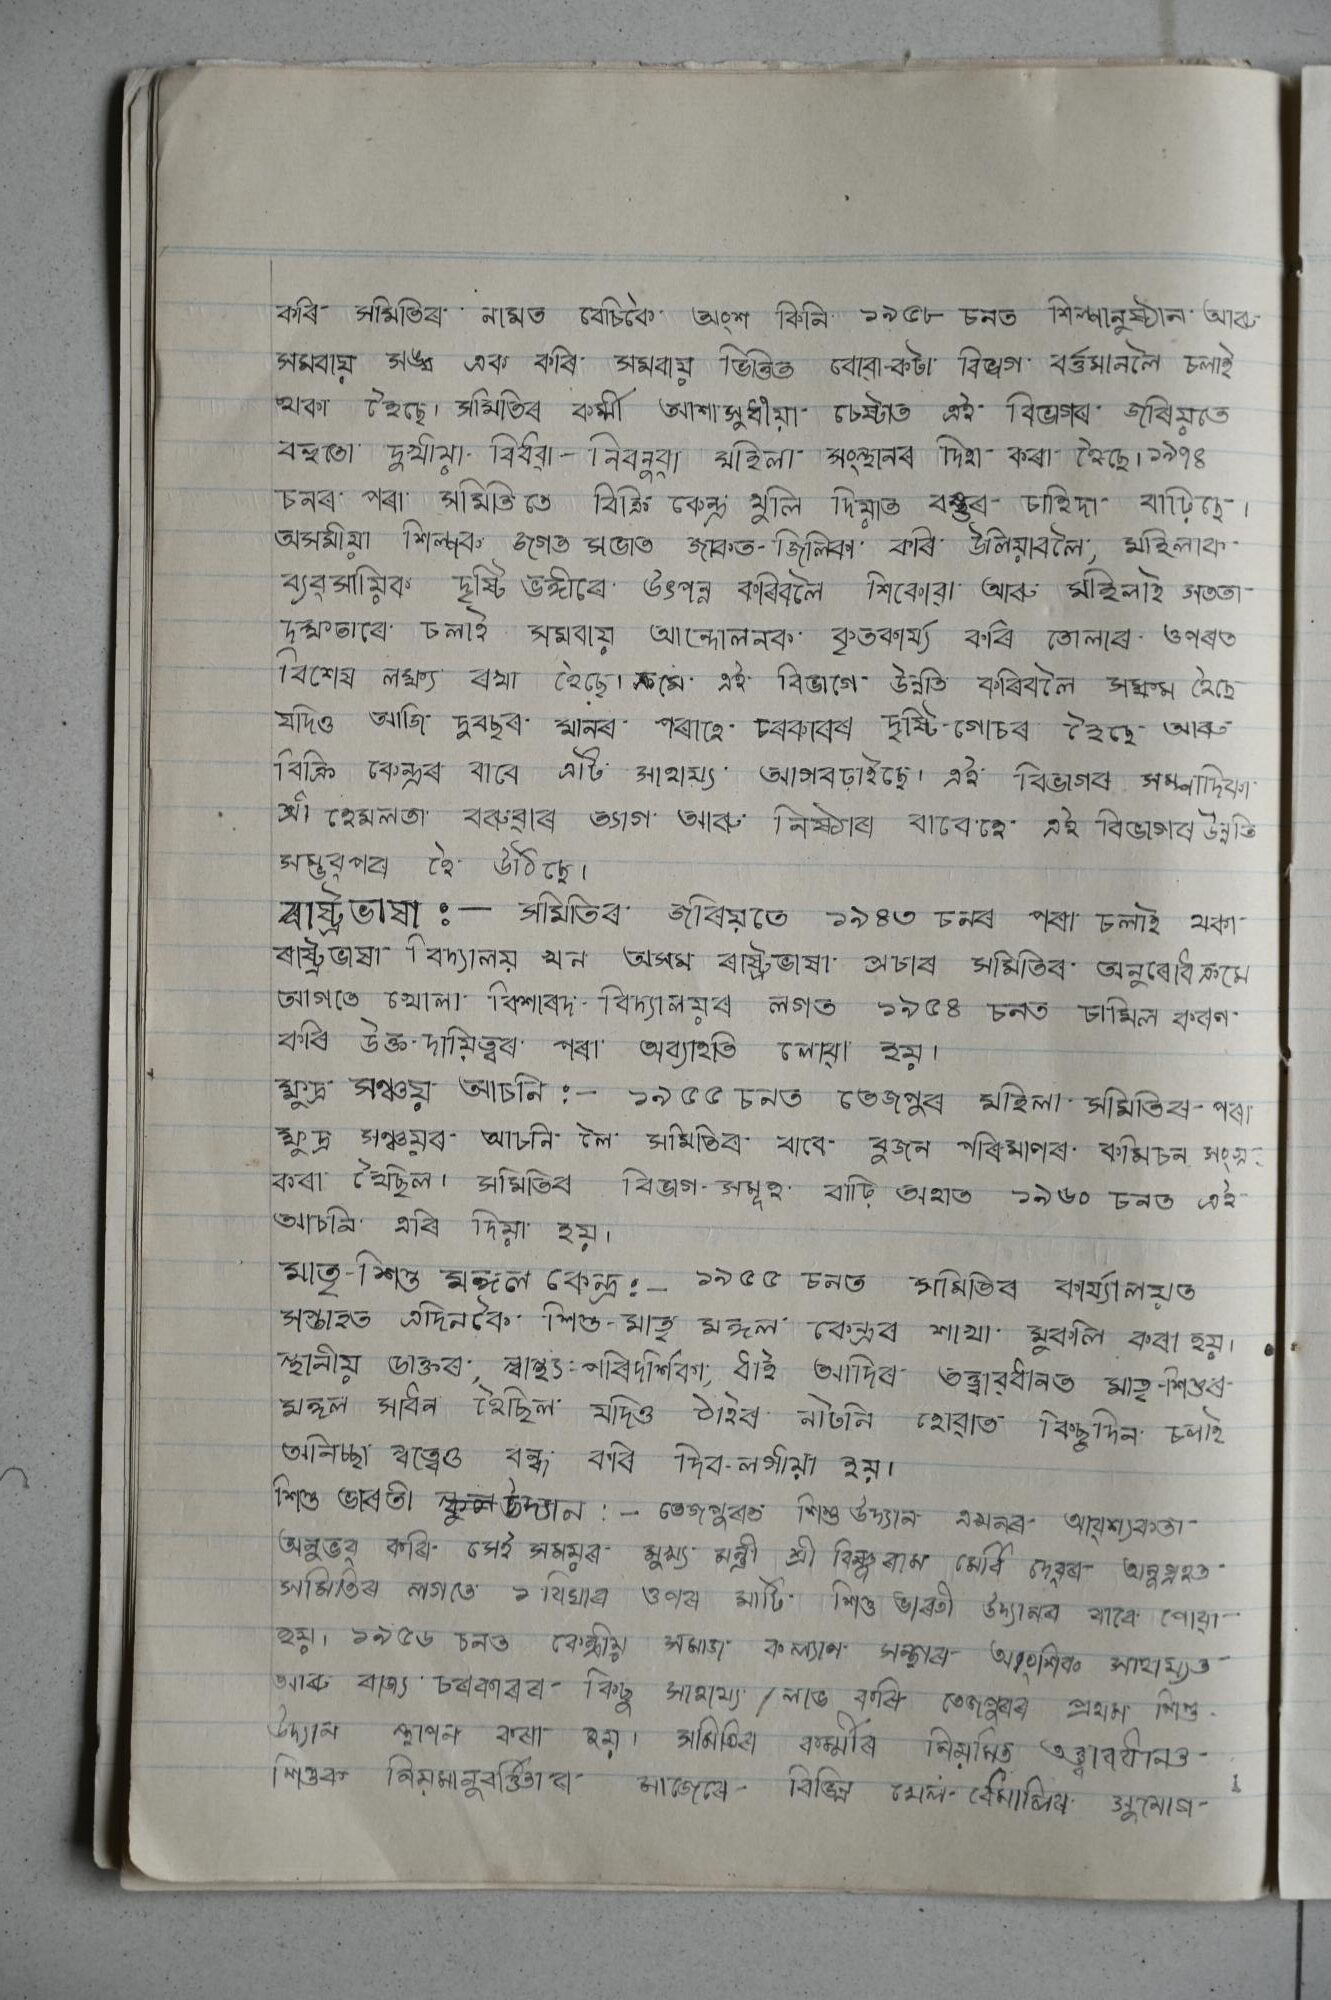 কৰি সমিতিৰ নামত বেচিকৈ অংশ কিনি ১৯৫৮ চনত শিল্পানুষ্ঠান আৰু
সমবায় সঙ্ঘ এক কৰি সমবায় ভিত্তিত বোৱা-কটা বিভাগ বৰ্ত্তমানলৈ চলাই
থকা হৈছে। সমিতিৰ কৰ্ম্মী আশাসুধীয়া চেষ্টাত এই বিভাগৰ জৰিয়তে
বহুতো দুখীয়া বিধৱা-নিবনুৱা মহিলা সংস্থানৰ দিহা কৰা হৈছে। ১৯৭৪
চনৰ পৰা সমিতিতে বিক্ৰি কেন্দ্ৰ খুলি দিয়াত বস্তুৰ চাহিদা বাঢ়িছে।
অসমীয়া শিল্পক জগত সভাত জাকত-জিলিকা কৰি উলিয়াবলৈ, মহিলাক
ব্যৱসায়িক দৃষ্টি ভঙ্গীৰে উৎপন্ন কৰিবলৈ শিকোৱা আৰু মহিলাই সততা
দক্ষতাৰে চলাই সমবায় আন্দোলনক কৃতকাৰ্য্য কৰি তোলাৰ ওপৰত
বিশেষ লক্ষ্য ৰখা হৈছে। ক্ৰমে এই বিভাগে উন্নতি কৰিবলৈ সক্ষম হৈছে
যদিও আজি দুবছৰ মানৰ পৰাহে চৰকাৰৰ দৃষ্টি-গোচৰ হৈছে আৰু
বিক্ৰি কেন্দ্ৰৰ বাবে এটি সাহায্য আগবঢ়াইছে। এই বিভাগৰ সম্পাদিকা
শ্ৰী হেমলতা বৰুৱাৰ ত্যাগ আৰু নিষ্ঠাৰ বাবেহে এই বিভাগৰ উন্নতি
সম্ভৱপৰ হৈ উঠিছে।
ৰাষ্ট্ৰভাষা :— সমিতিৰ জৰিয়তে ১৯৪৩ চনৰ পৰা চলাই থকা
ৰাষ্ট্ৰভাষা বিদ্যালয় খন অসম ৰাষ্ট্ৰভাষা প্ৰচাৰ সমিতিৰ অনুৰোধ ক্ৰমে
আগতে খোলা বিশাৰদ বিদ্যালয়ৰ লগত ১৯৫৪ চনত চামিল কৰণ
কৰি উক্ত দায়িত্বৰ পৰা অব্যাহতি লোৱা হয়।
ক্ষুদ্ৰ সঞ্চয় আচনি :— ১৯৫৫ চনত তেজপুৰ মহিলা সমিতিৰ পৰা
ক্ষুদ্ৰ সঞ্চয়ৰ আচনি লৈ সমিতিৰ বাবে বুজন পৰিমাণৰ কমিচন
কৰা হৈছিল। সমিতিৰ বিভাগ-সমূহ বাঢ়ি অহাত ১৯৬০ চনত এই
আচনি এৰি দিয়া হয়।
মাতৃ-শিশু মঙ্গল কেন্দ্ৰ :— ১৯৫৫ চনত সমিতিৰ কাৰ্য্যালয়ত
সপ্তাহত এদিনকৈ শিশু-মাতৃ মঙ্গল কেন্দ্ৰৰ শাখা মুকলি কৰা হয়।
স্থানীয় ডাক্তৰ, স্বাস্থ্য-পৰিদৰ্শিকা, ধাই আদিৰ তত্ত্বাৱধানত মাতৃ-শিশুৰ
মঙ্গল সাধন হৈছিল যদিও ঠাইৰ নাটনি হোৱাত কিছুদিন চলাই
অনিচ্ছা স্বত্বেও বন্ধ কৰি দিব-লগীয়া হয়।
শিশু ভাৰতী উদ্যান :— তেজপুৰত শিশু উদ্যান এখনৰ আৱশ্যকতা
অনুভৱ কৰি সেই সময়ৰ মুখ্য মন্ত্ৰী শ্ৰী বিষ্ণুৰাম মেধি দেৱৰ অনুগ্ৰহত
সমিতিৰ লগতে ১ বিঘাৰ ওপৰ মাটি শিশু ভাৰতী উদ্যানৰ বাবে পোৱা
হয়। ১৯৫৬ চনত কেন্দ্ৰীয় সমাজ কল্যাণ সন্থাৰ আংশিক সাহায্যত
আৰু ৰাজ্য চৰকাৰৰ কিছু সাহায্য লাভ কৰি তেজপুৰৰ প্ৰথম শিশু
উদ্যান স্থাপন কৰা হয়। সমিতিৰ কৰ্ম্মীৰ নিয়মিত তত্ত্বাবধানত
শিশুক নিয়মানুবৰ্ত্তিতাৰ মাজেৰে বিভিন্ন খেল-ধেমালিৰ সুযোগ